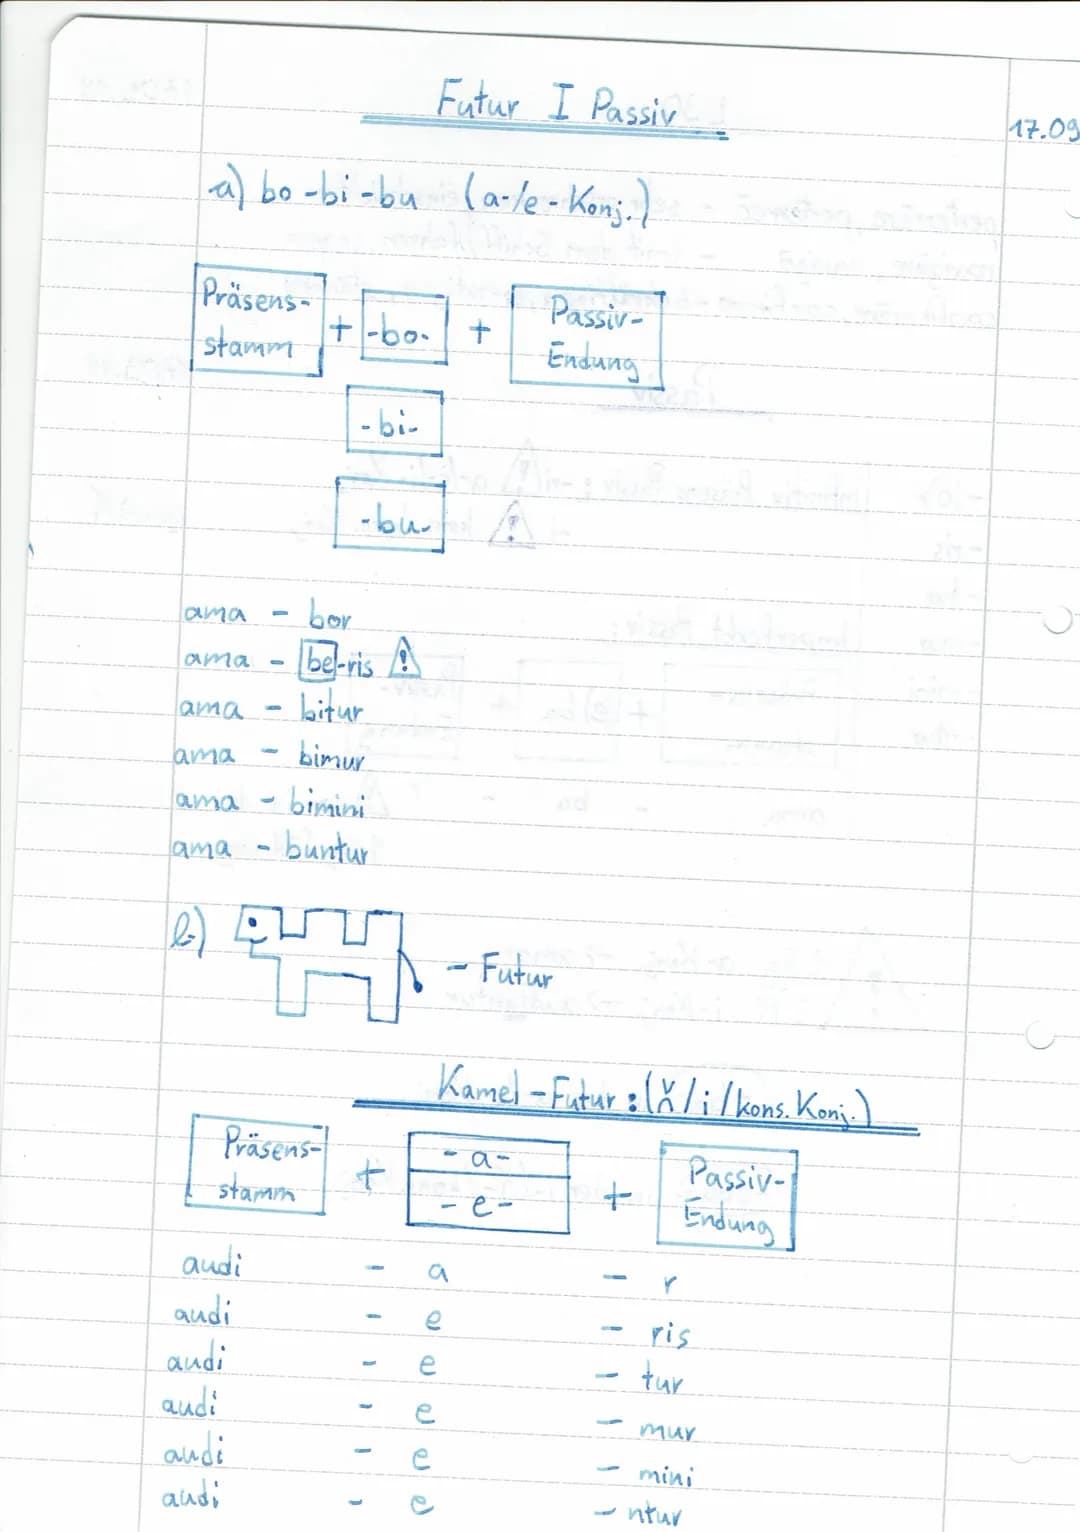 Futur I Passiv
17.09
a) bo-bi-bu (a-/e-Konj.)
Präsens-
stamm
+
-bo-
+
Passiv-
Endung
-bi-
-bu-
ama - bor
ama - be-ris !
ama - bitur
ama - bimur
ama - bimini
ama - buntur
b) - Futur
Kamel-Futur: (ǐ/i/kons. Konj.)
Präsens-
stamm
+
-a-
-e-
+
Passiv-
Endung
audi - a - r
audi - e - ris
audi - e - tur
audi - e - mur
audi - e - mini
audi - e - ntur